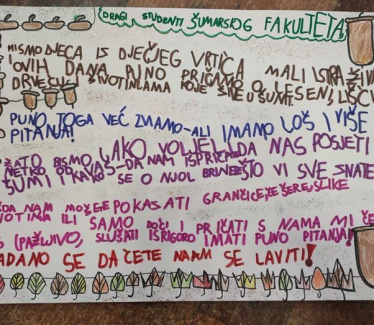 DRAGI STUDENTI ŠUMARSKOG FAKULTETA
MI SMO DJECA IZ DJEČJEG VRTIĆA MALI ISTRAŽIV
OVIH DANA PUNO PRIČAMO O JESENI, LIŠĆU
DRVEĆU ŽIVOTINJAMA KOJE ŽIVE U ŠUMI.
PUNO TOGA VEĆ ZNAMO-ALI IMAMO JOŠ I VIŠE
PITANJA!
ZATO BISMO JAKO VOLJELI DA NAS POSJETI
NETKO OD VAS I DA NAM ISPRIČA
ŠUMI I KAKO SE O NJOJ BRINE ŠTO VI SVE ZNATE
DA NAM MOŽE POKAZATI GRANČICE SLIKE
ILI SAMO DOĆI I PRIČATI S NAMA MI ĆE
(PAŽLJIVO, SLUŠATI I SIGRORO IMATI PUNO PITANJA!
ADANO SE DA ĆETE NAM SE LAVITI!